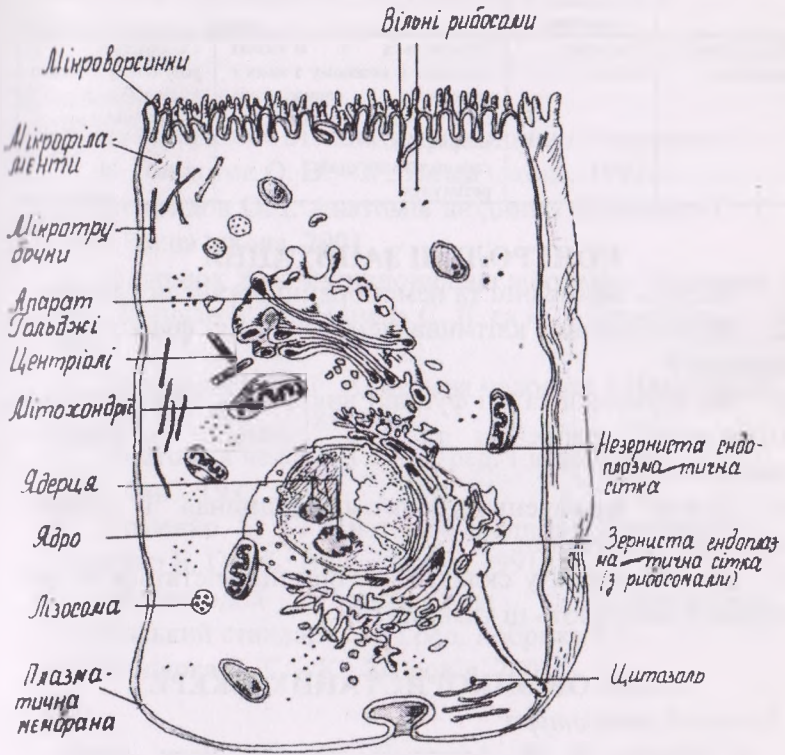 Вільні рибосоми
Мікроворсинки
Мікрофіла-
менти
Мікротру-
бочки
Апарат
Гольджі
Центріолі
Мітохондрії
Ядерця
Ядро
Лізосома
Плазма-
тична
мембрана
Незерниста ендо-
плазматична
сітка
Зерниста ендоплаз
матична сітка
(з рибосомами)
Цитазоль